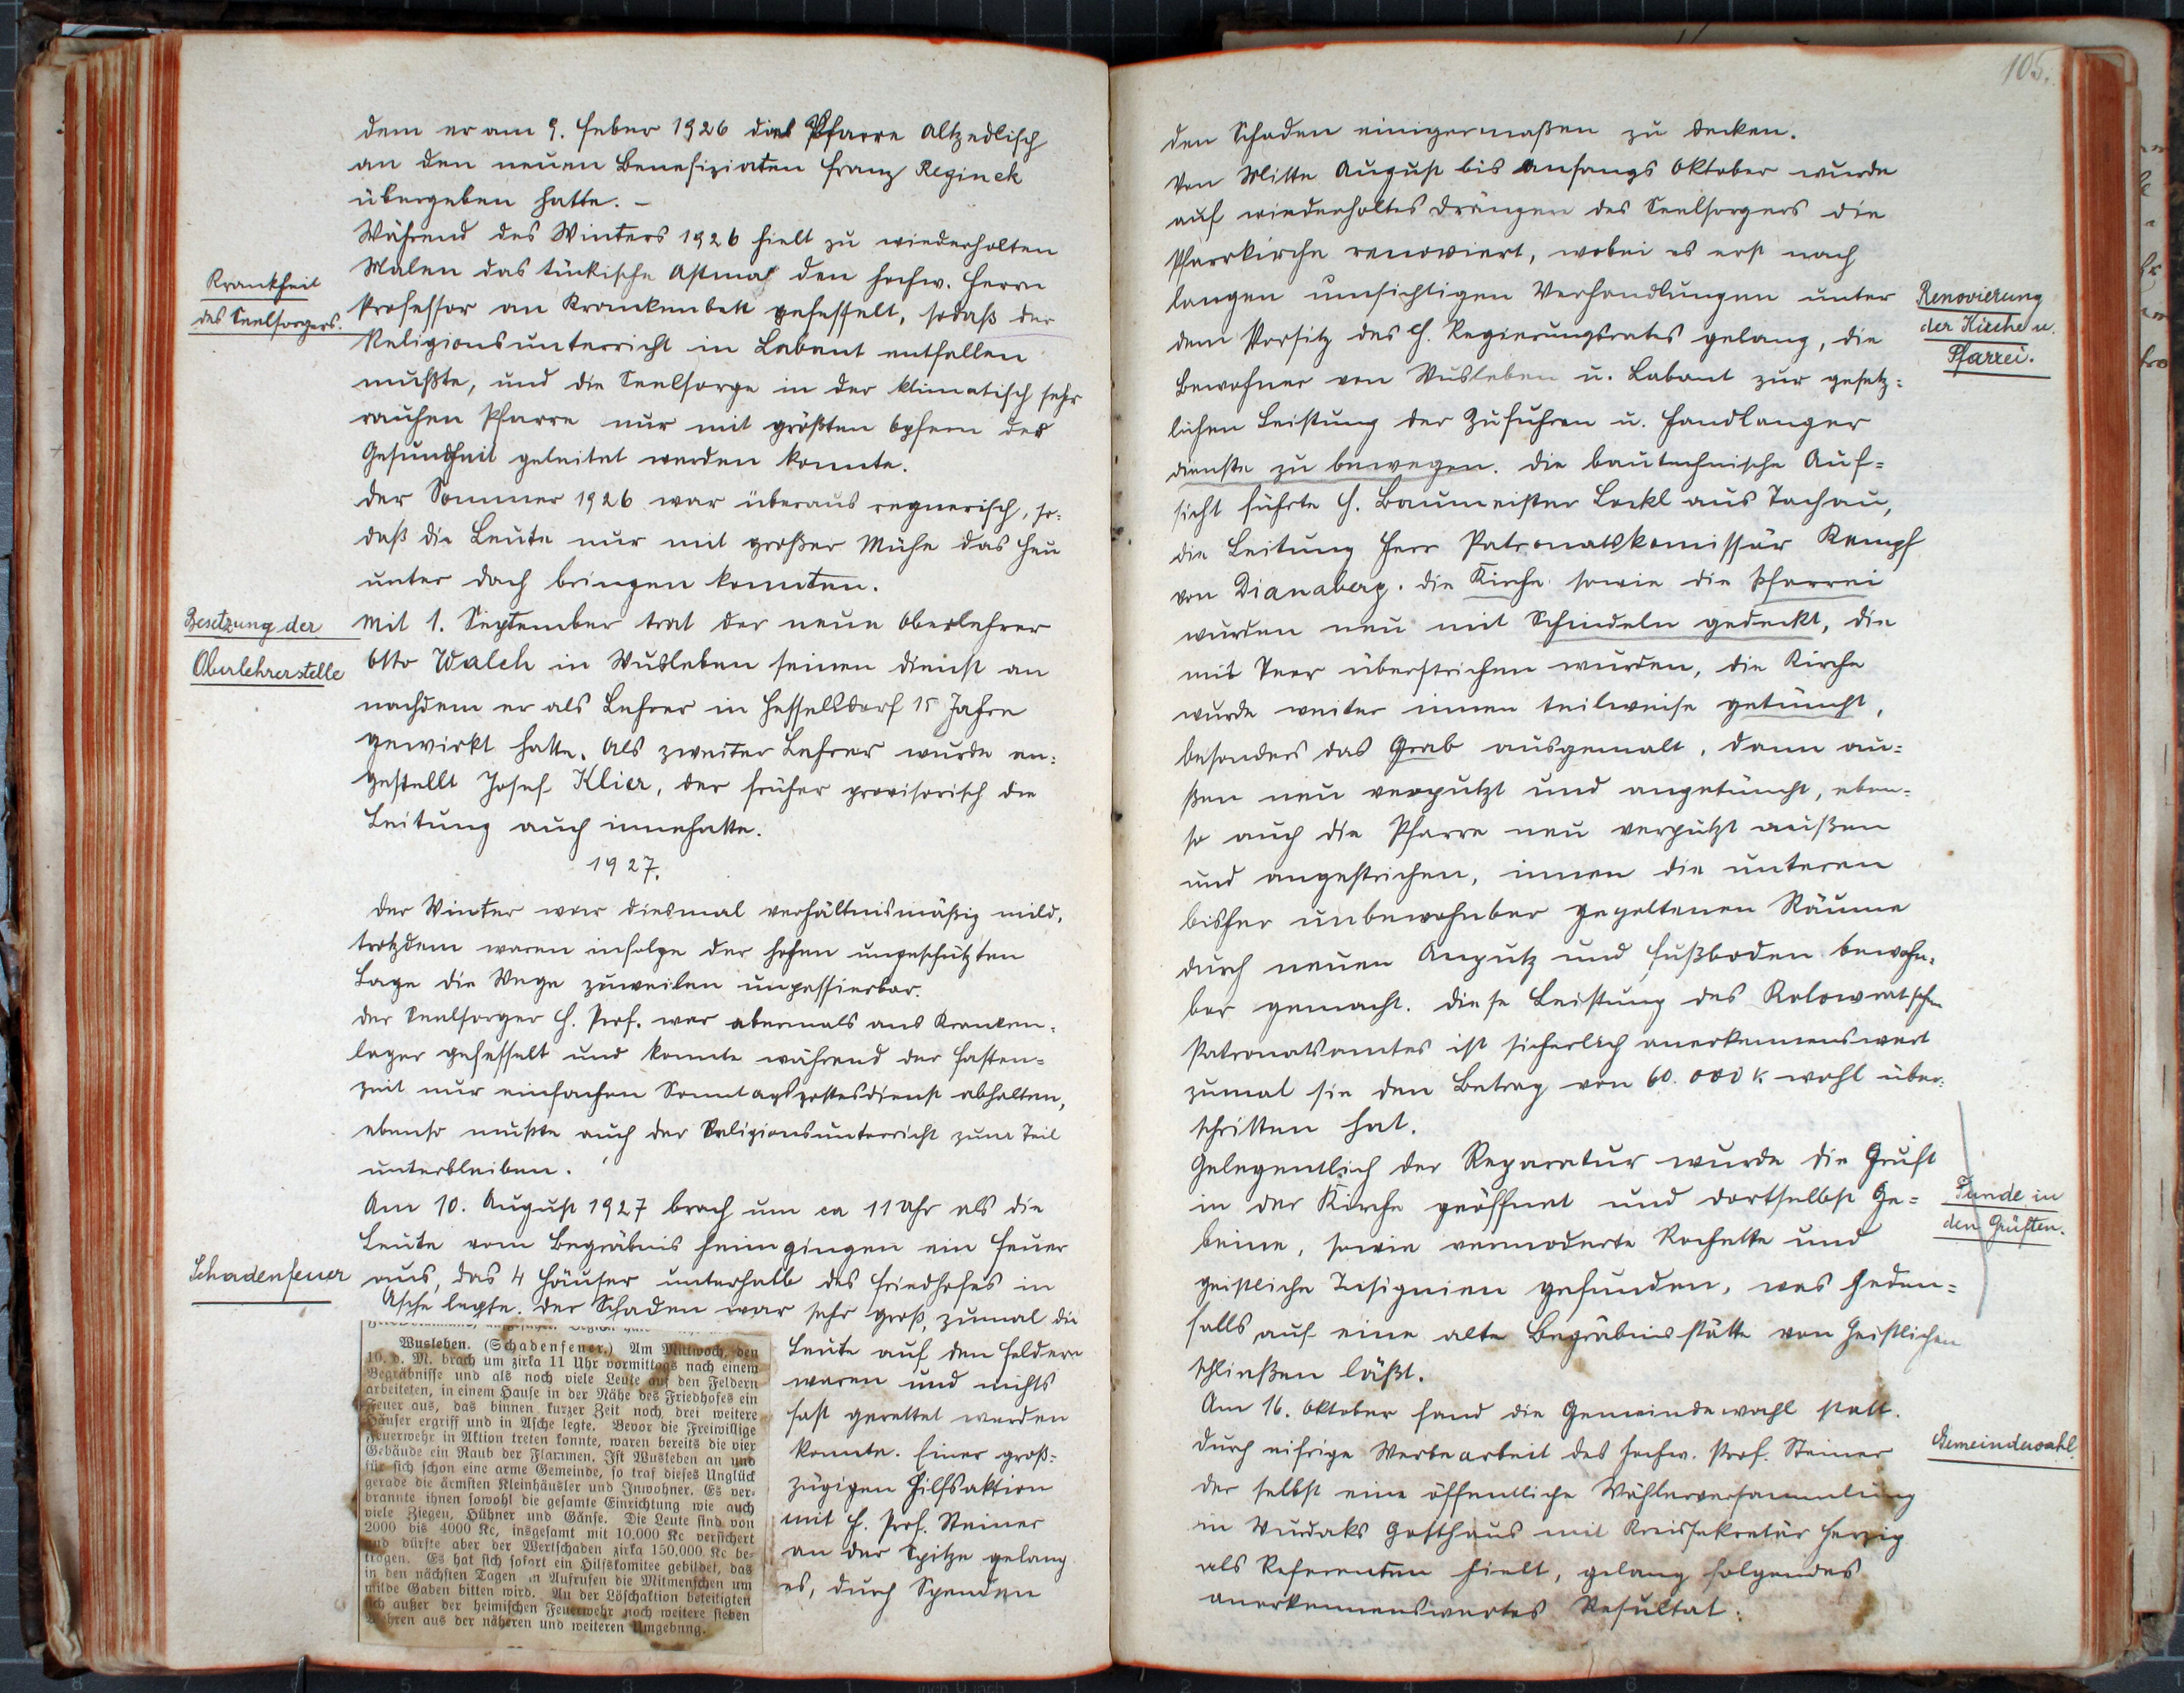 dem er am 9. Feber 1926 die Pfarre Altzedlisch
an den neuen Benefiziaten Franz Reginek
übergeben hatte. –
Während des Winters 1926 hielt zu wiederholten
Malen das tückische Astma den hochw. Herrn
Krankheit
des Seelsorgers.
Professor an Krankenbett gefesselt, sodaß der
Religionsunterricht in Labant entfallen
mußte, und die Seelsorge in der klimatisch sehr
rauhen Pfarre nur mit größten Opfern der
Gesundheit geleitet werden konnte.
Der Sommer 1926 war überaus regnerisch, so=
daß die Leute nur mit großer Mühe das Heu
unter Dach bringen konnten.
Besetzung der
Oberlehrerstelle
Mit 1. September trat der neue Oberlehrer
Otto Walch in Wusleben seinen Dienst an
nachdem er als Lehrer in Hesselsdorf 15 Jahre
gewirkt hatte. Als zweiter Lehrer wurde an=
gestellt Josef Klier, der früher provisorisch die
Leitung auch innehatte.
1927.
Der Winter war diesmal verhältnismäßig mild,
trotzdem waren infolge der hohen ungeschützten
Lage die Wege zuweilen unpassierbar.
Der Seelsorger H. Prof. war abermals ans Kranken=
lager gefesselt und konnte während der Fasten=
zeit nur einfachen Sonntagsgottesdienst abhalten,
ebenso mußte auch der Religionsunterricht zum Teil
unterbleiben.
Am 10. August 1927 brach um ca 11 Uhr als die
Leute vom Begräbnis heimgingen ein Feuer
Schadenfeuer
aus, das 4 Häuser unterhalb des Friedhofes in
Asche legte. Der Schaden war sehr groß, zumal die
Leute auf den Feldern
waren und nichts
fast gerettet werden
konnte. Einer groß=
zügigen Hilfsaktion
mit H. Prof. Steiner
an der Spitze gelang
es, durch Spenden
Wusleben. (Schadenfeuer.) Am Mittwoch, den
10. d. M. brach um zirka 11 Uhr vormittags nach einem
Begräbnisse und als noch viele Leute auf den Feldern
arbeiteten, in einem Hause in der Nähe des Friedhofes ein
Feuer aus, das binnen kurzer Zeit noch drei weitere
Häuser ergriff und in Asche legte. Bevor die Freiwillige
Feuerwehr in Aktion treten konnte, waren bereits die vier
Gebäude ein Raub der Flammen. Ist Wusleben an und
für sich schon eine arme Gemeinde, so traf dieses Unglück
gerade die ärmsten Kleinhäusler und Inwohner. Es ver=
brannte ihnen sowohl die gesamte Einrichtung wie auch
viele Ziegen, Hühner und Gänse. Die Leute sind von
2000 bis 4000 Kc, insgesamt mit 10.000 Kc versichert
und dürfte aber der Wertschaden zirka 150.000 Kc be=
tragen. Es hat sich sofort ein Hilfskomitee gebildet, das
in den nächsten Tagen in Aufrufen die Mitmenschen um
milde Gaben bitten wird. An der Löschaktion beteiligten
sich außer der heimischen Feuerwehr noch weitere sieben
Wehren aus der näheren und weiteren Umgebung.
105.
den Schaden einigermaßen zu decken.
Von Mitte August bis Anfangs Oktober wurde
auf wiederholtes Drängen des Seelsorgers die
Pfarrkirche renoviert, wobei es erst nach
langen umsichtigen Verhandlungen unter
Renovierung
der Kirche u.
Pfarrei.
dem Vorsitz des H. Regierungsrates gelang, die
Bewohner von Wusleben u. Labant zur gesetz=
lichen Leistung der Zufuhren u. Handlanger
dienste zu bewegen. Die bautechnische Auf=
sicht führte H. Baumeister Lockl aus Tachau,
die Leitung Herr Patronatskomissär Kempf
von Dianaberg. Die Kirche sowie die Pfarrei
wurden neu mit Schindeln gedeckt, die
mit Teer überstrichen wurden, die Kirche
wurde weiter innen teilweise getüncht,
besonders das Grab ausgemalt, dann au=
ßen neu verputzt und angetüncht, eben=
so auch die Pfarre neu verputzt außen
und angestrichen, innen die unteren
bisher unbewohnbar gegoltenen Räume
durch neuen Anputz und Fußboden bewohn=
bar gemacht. Diese Leistung des Kolowratschen
Patronatsamtes ist sicherlich anerkennenswert
zumal sie den Betrag von 60.000 K. wohl über=
schritten hat.
Gelegentlich der Reparatur wurde die Gruft
in der Kirche geöffnet und dortselbst Ge=
Funde in
den Grüften.
beine, sowie vermoderte Rochette und
geistliche Insignien gefunden, was jeden=
falls auf eine alte Begräbnisstätte von Geistlichen
schließen läßt.
Am 16. Oktober fand die Gemeindewahl statt.
Gemeindewahl.
Durch eifrige Werbearbeit des hochw. Prof. Steiner
der selbst eine öffentliche Wählerversammlung
in Wurdaks Gasthaus mit Kreissekretär Herzig
als Referenten hielt, gelang folgendes
anerkennenswertes Resultat: